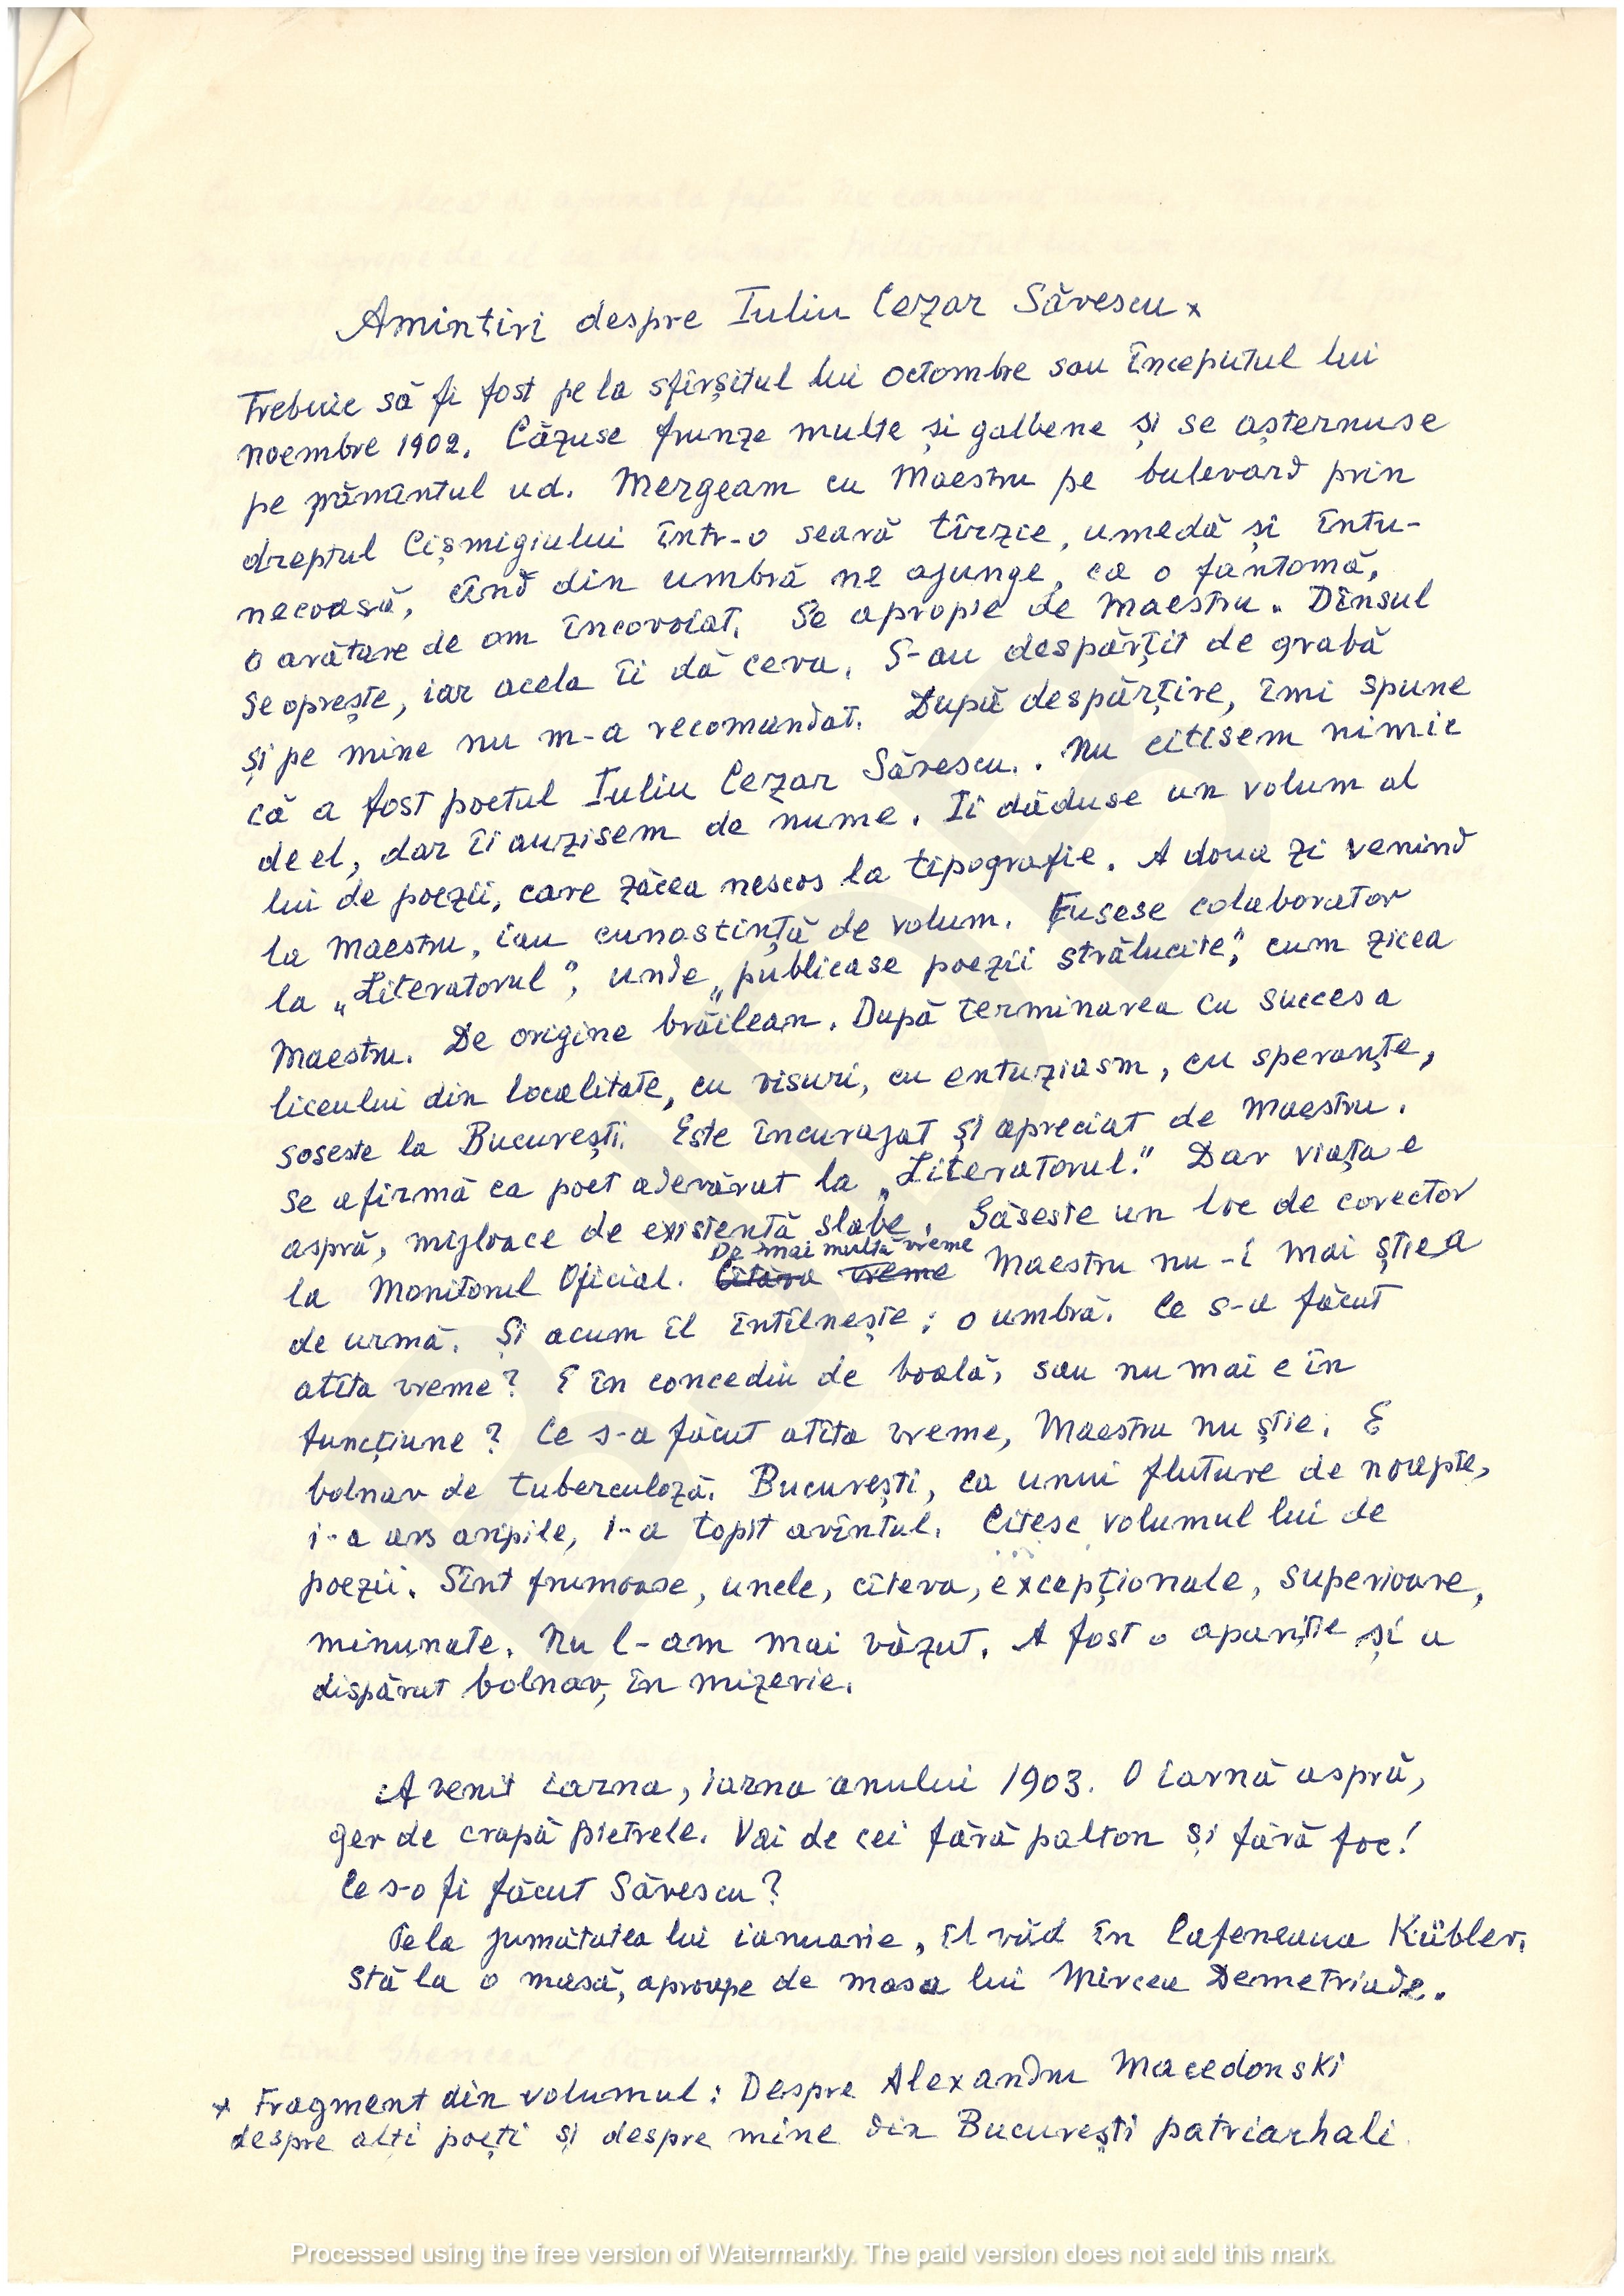 Amintiri despre Iuliu Cezar Săvescu x
Trebuie să fi fost pe la sfîrșitul lui octombre sau începutul lui
noembre 1902. Căzuse frunze multe și galbene și se așternuse
pe pămîntul ud. Mergeam cu Maestru pe bulevard prin
dreptul Cișmigiului într-o seară tîrzie, umedă și întu-
necoasă, cînd din umbră ne ajunge, ca o fantomă,
o arătare de om încovoiat. Se apropie de Maestru. Dînsul
se oprește, iar acela îi dă ceva. S-au despărțit de grabă
și pe mine nu m-a recomandat. După despărțire, îmi spune
că a fost poetul Iuliu Cezar Săvescu.. Nu citisem nimic
de el, dar îi auzisem de nume. Ii dăduse un volum al
lui de poezii, care zăcea nescos la tipografie. A doua zi venind
la Maestru, iau cunostință de volum. Fusese colaborator
la „Literatorul”, unde „publicase poezii strălucite”, cum zicea
Maestru. De origine brăilean. După terminarea cu succes a
liceului din localitate, cu visuri, cu entuziasm, cu speranțe,
soseste la București. Este încurajat și apreciat de Maestru.
Se afirmă ca poet adevărat la „Literatorul.” Dar viața e
aspră, mijloace de existență slabe. Găseste un loc de corector
De mai multă vreme
la Monitorul Oficial. Cîtăva vreme Maestru nu-i mai știea
de urmă. Și acum îl întîlnește: o umbră. Ce s-a făcut
atîta vreme? E în concediu de boală, sau nu mai e în
funcțiune? Ce s-a făcut atîta vreme, Maestru nu știe. E
bolnav de tuberculoză. București, ca unui fluture de noapte,
i-a ars aripile, i-a topit avîntul. Citesc volumul lui de
poezii. Sînt frumoase, unele, cîteva, excepționale, superioare,
minunate. Nu l-am mai văzut. A fost o apariție și a
dispărut bolnav, în mizerie.
A venit iarna, iarna anului 1903. O iarnă aspră,
ger de crapă pietrele. Vai de cei fără palton și fără foc!
Ce s-o fi făcut Săvescu?
Pe la jumătatea lui ianuarie, îl văd în Cafeneaua Kübler.
Stă la o masă, aproape de masa lui Mircea Demetriade.
x Fragment din volumul: Despre Alexandru Macedonski
despre alți poeți și despre mine din București patriarhali
Processed using the free version of Watermarkly. The paid version does not add this mark.